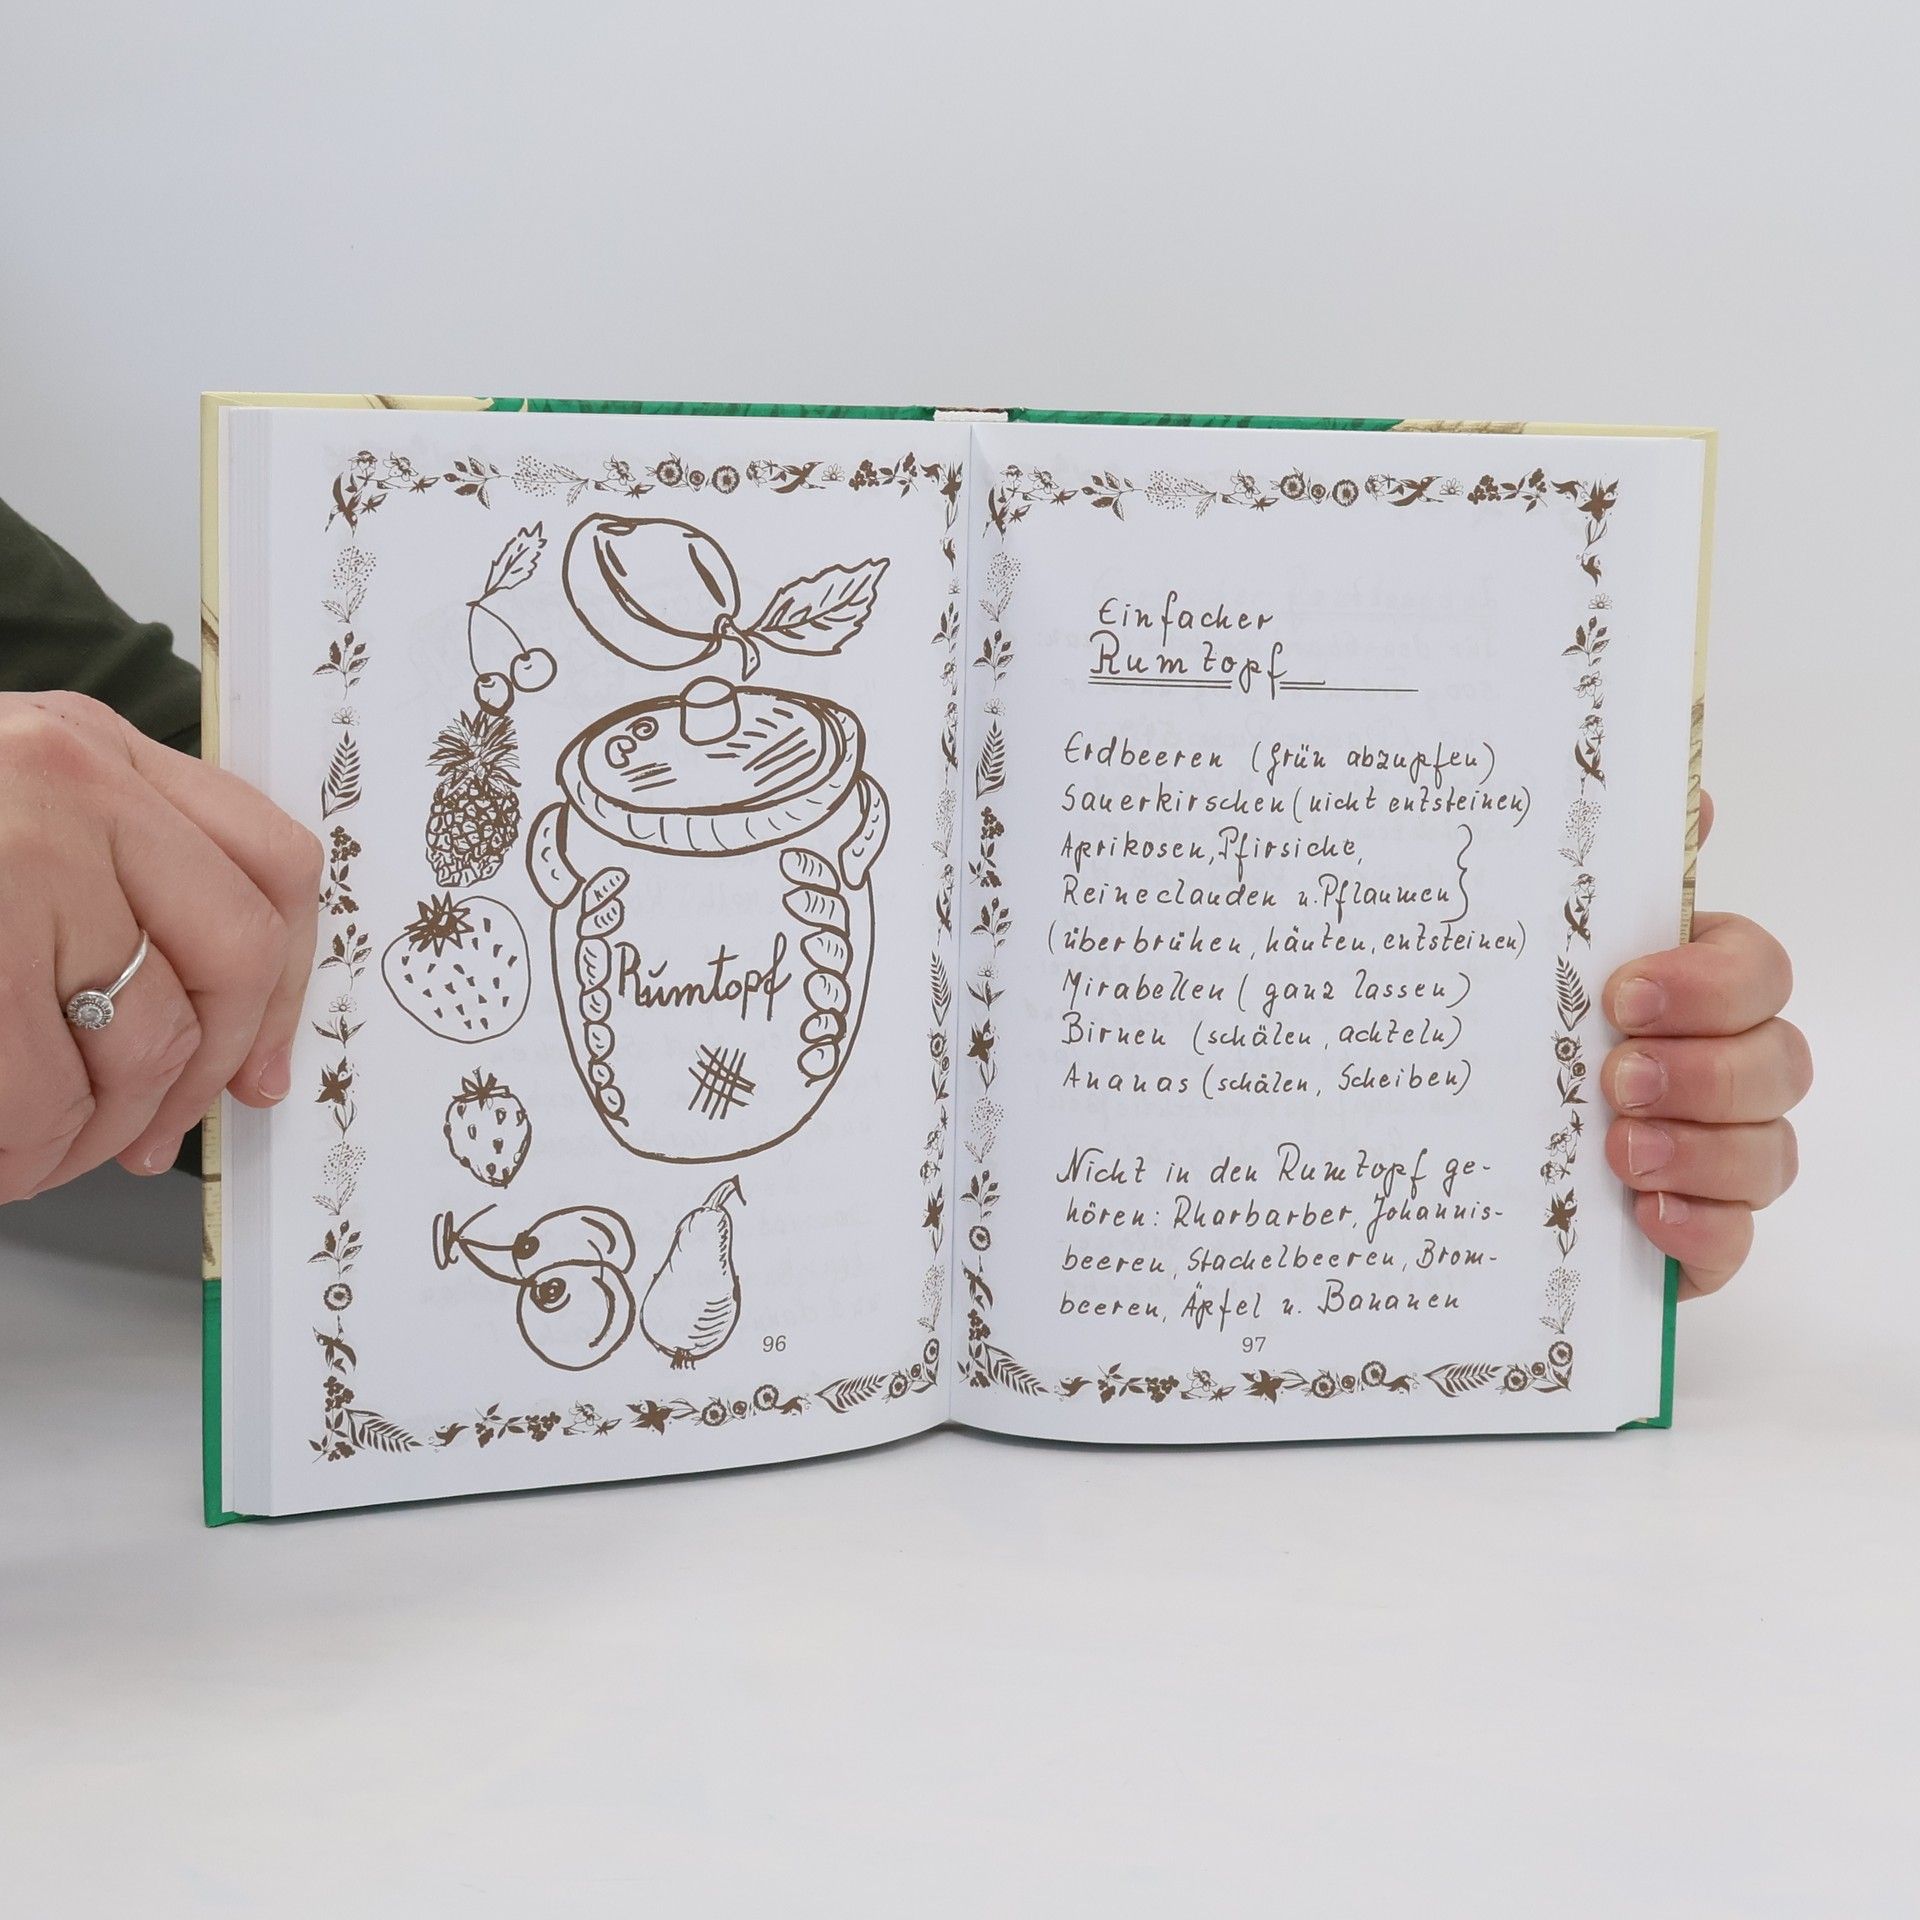 Rumtopf
96
Einfacher
Rumtopf
Erdbeeren (Grün abzupfen)
Sauerkirschen (nicht entsteinen)
Aprikosen, Pfirsiche,
Reineclauden u. Pflaumen}
(überbrühen, häuten, entsteinen)
Mirabellen (ganz lassen)
Birnen (schälen, achteln)
Ananas (schälen, Scheiben)
Nicht in den Rumtopf ge-
hören: Rharbarber, Johannis-
beeren, Stachelbeeren, Brom-
beeren, Äpfel u. Bananen
97